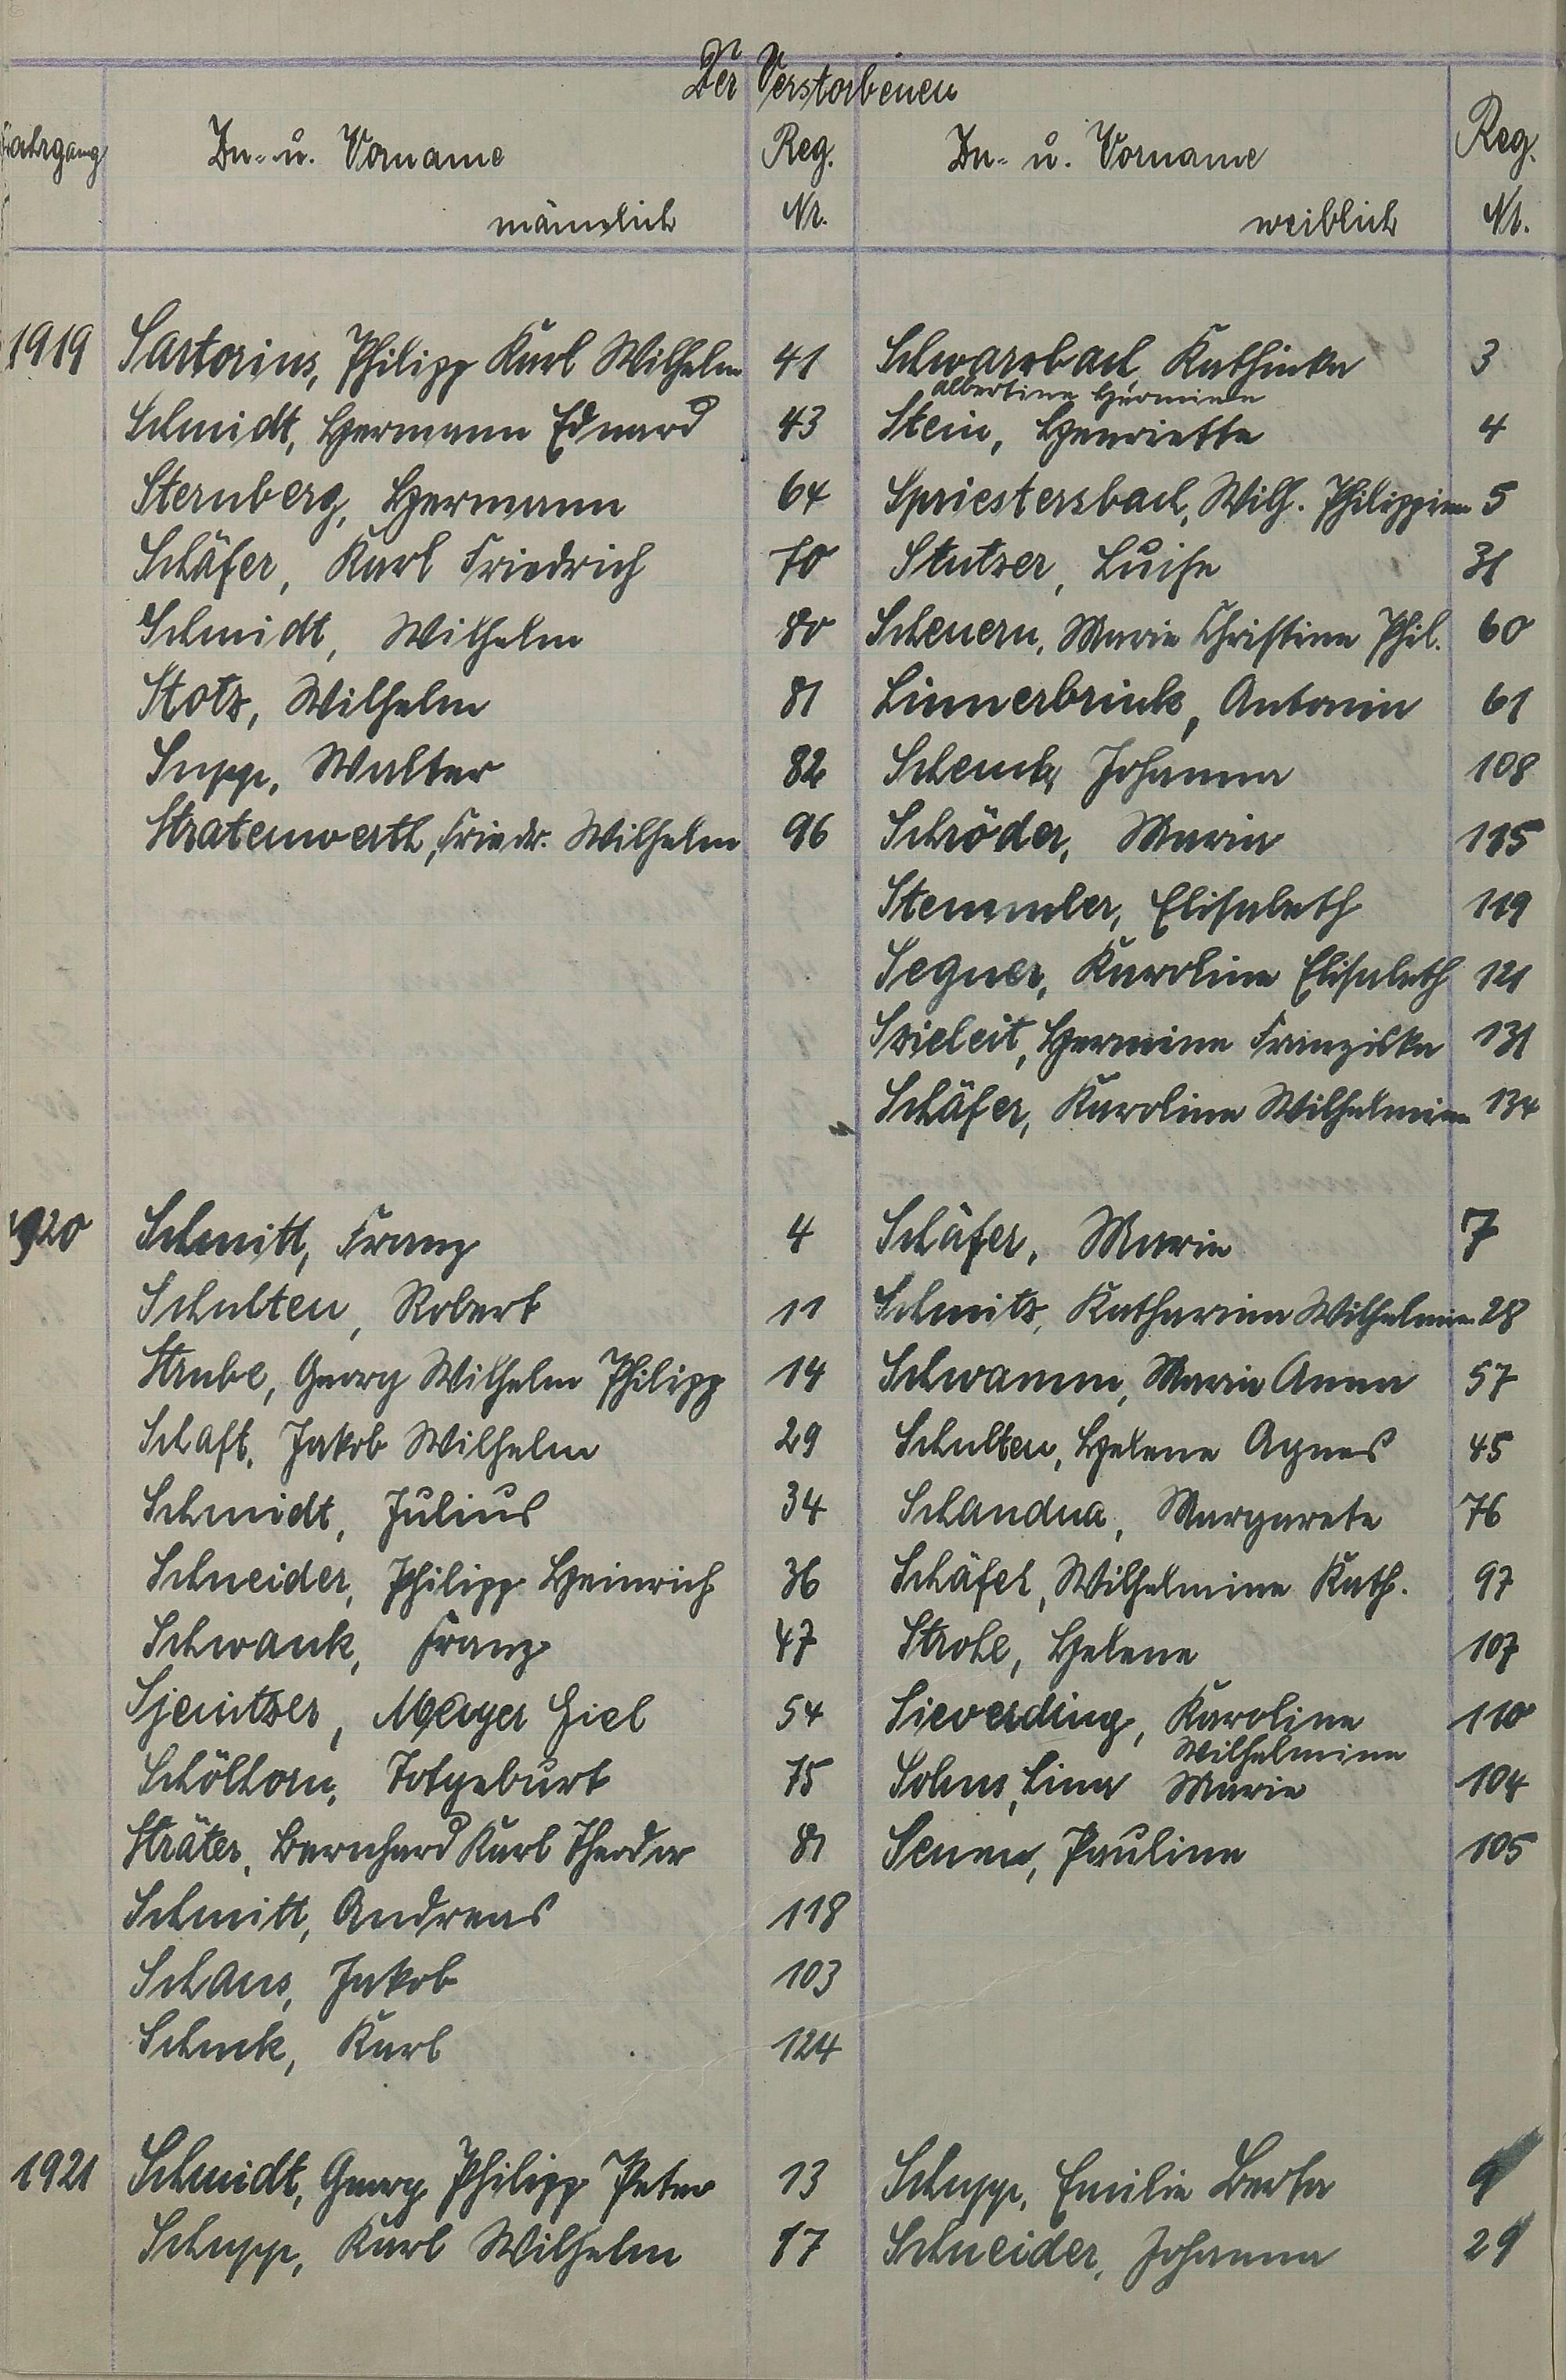 Der Verstorbenen
Jahrgang Zu- u. Vorname Reg. Zu- u. Vorname Reg.
männlich Nr. weiblich Nr.
1919 Sartorius, Philipp Karl Wilhelm 41 Schwarzbach Kathinka 3
Albertine Hermine
Schmidt, Hermann Eduard 43 Stein, Henriette 4
Sternberg, Hermann 64 Spriestersbach, Wilh. Philippine 5
Schäfer, Karl Friedrich 70 Stutzer, Luise 31
Schmidt, Wilhelm 80 Scheuern, Marie Christine Phil. 60
Stotz, Wilhelm 81 Linnerbrink, Antonie 61
Supp, Walter 82 Schenk, Johanna 108
Stratenwerth, Friedr. Wilhelm 96 Schröder, Maria 115
Stemmler, Elisabeth 119
Segner, Karoline Elisabeth 121
Szieleit, Hermine Franziska 131
Schäfer, Karoline Wilhelmine 134
1920 Schmitt, Franz 4 Schäfer, Marie 7
Schulten, Robert 11 Schmitz, Katharina Wilhelmine 28
Strube, Georg Wilhelm Philipp 14 Schwamm, Maria Anna 57
Schaft, Jakob Wilhelm 29 Schulten, Helene Agnes 45
Schmidt, Julius 34 Schandua, Margarete 76
Schneider, Philipp Heinrich 36 Schäfer, Wilhelmine Kath. 97
Schwank, Franz 47 Strohe, Helene 107
Sjenitzer, Meyer Giel 54 Sieverding, Karoline 110
Wilhelmine
Schölhorn, Totgeburt 75 Sohns, Lina Marie 104
Sträter, Bernhard Karl Theodor 81 Senner, Pauline 105
Schmitt, Andreas 118
Schaus, Jakob 103
Schuck, Karl 124
1921 Schmidt, Georg Philipp Peter 13 Schupp, Emilie Berta 9
Schupp, Karl Wilhelm 17 Schneider, Johanna 29